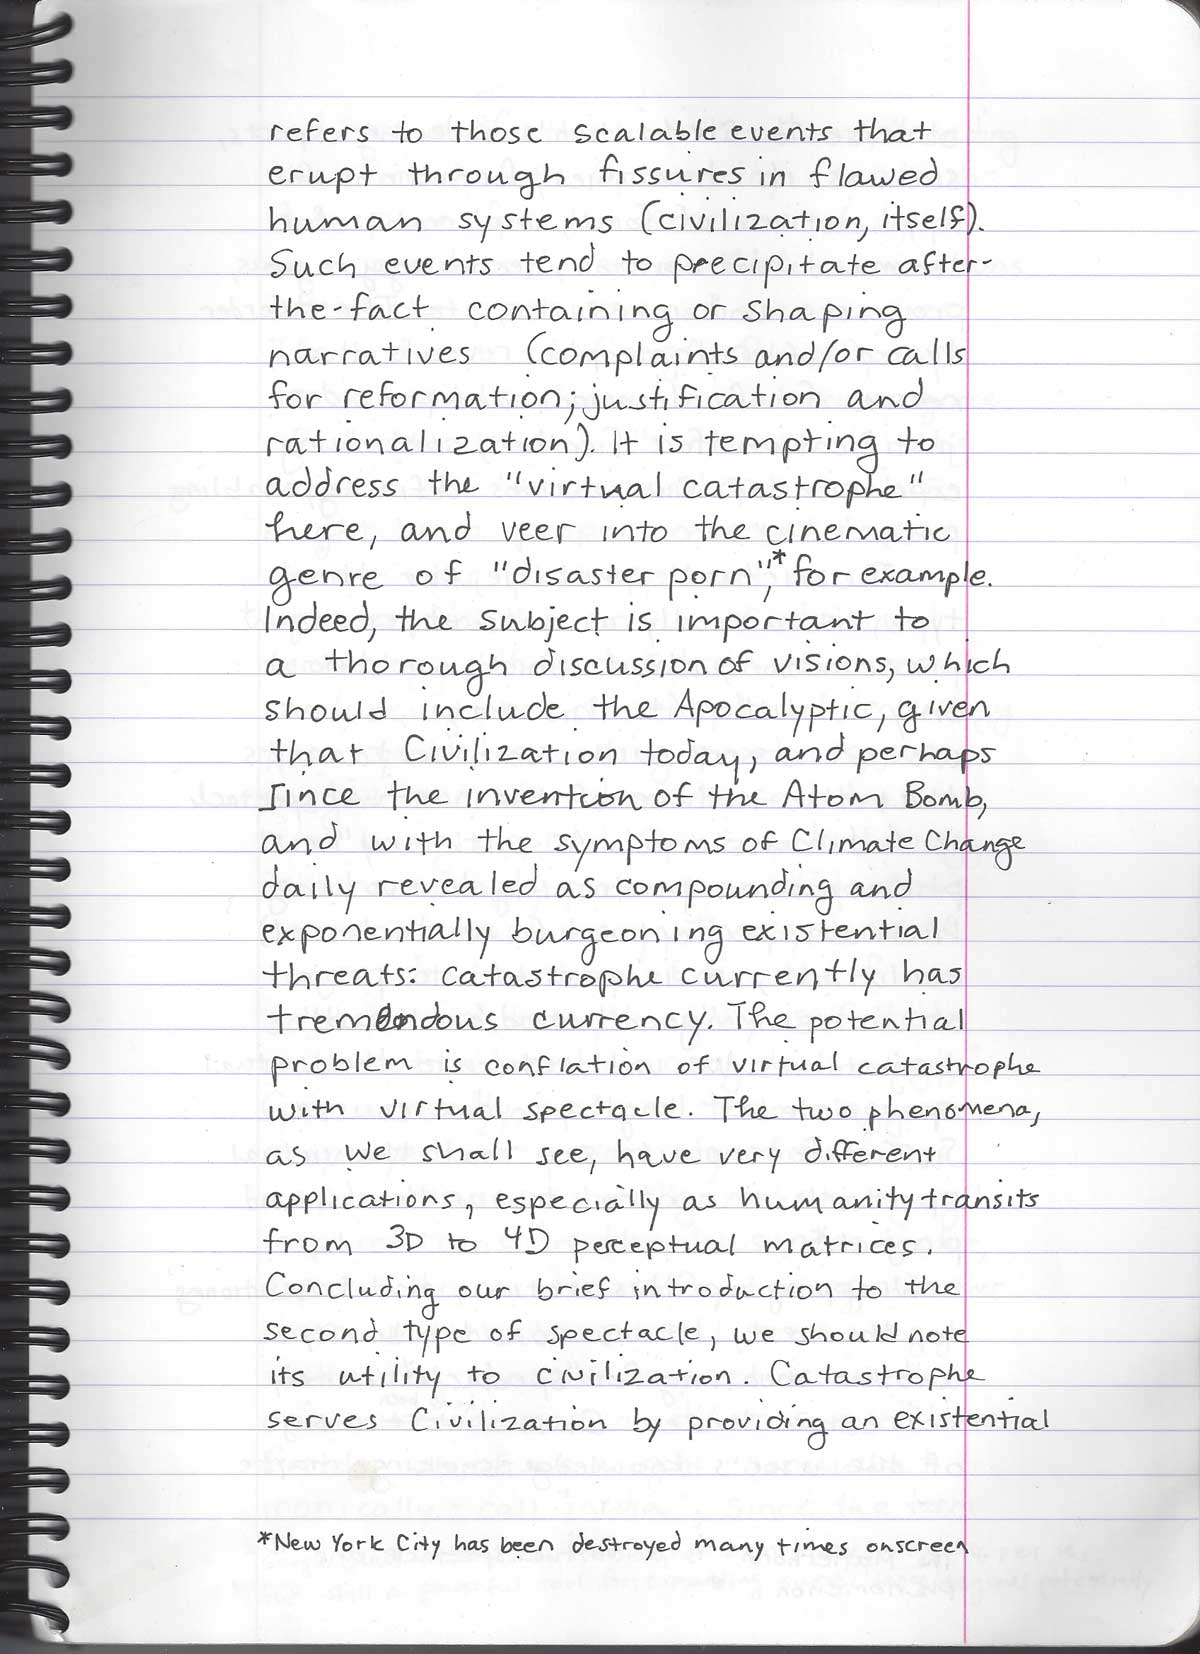 refers to those scalable events that
erupt through fissures in flawed
human systems (civilization, itself).
Such events tend to precipitate after-
the-fact containing or shaping
narratives (complaints and/or calls
for reformation; justification and
rationalization). It is tempting to
address the "virtual catastrophe"
here, and veer into the cinematic
genre of "disaster porn",* for example.
Indeed, the subject is important to
a thorough discussion of visions, which
should include the Apocalyptic, given
that Civilization today, and perhaps
since the invention of the Atom Bomb,
and with the symptoms of Climate Change
daily revealed as compounding and
exponentially burgeoning existential
threats: catastrophe currently has
tremendous currency. The potential
problem is conflation of virtual catastrophe
with virtual spectacle. The two phenomena,
as we shall see, have very different
applications, especially as humanity transits
from 3D to 4D perceptual matrices.
Concluding our brief introduction to the
second type of spectacle, we should note
its utility to civilization. Catastrophe
serves Civilization by providing an existential
*New York City has been destroyed many times onscreen